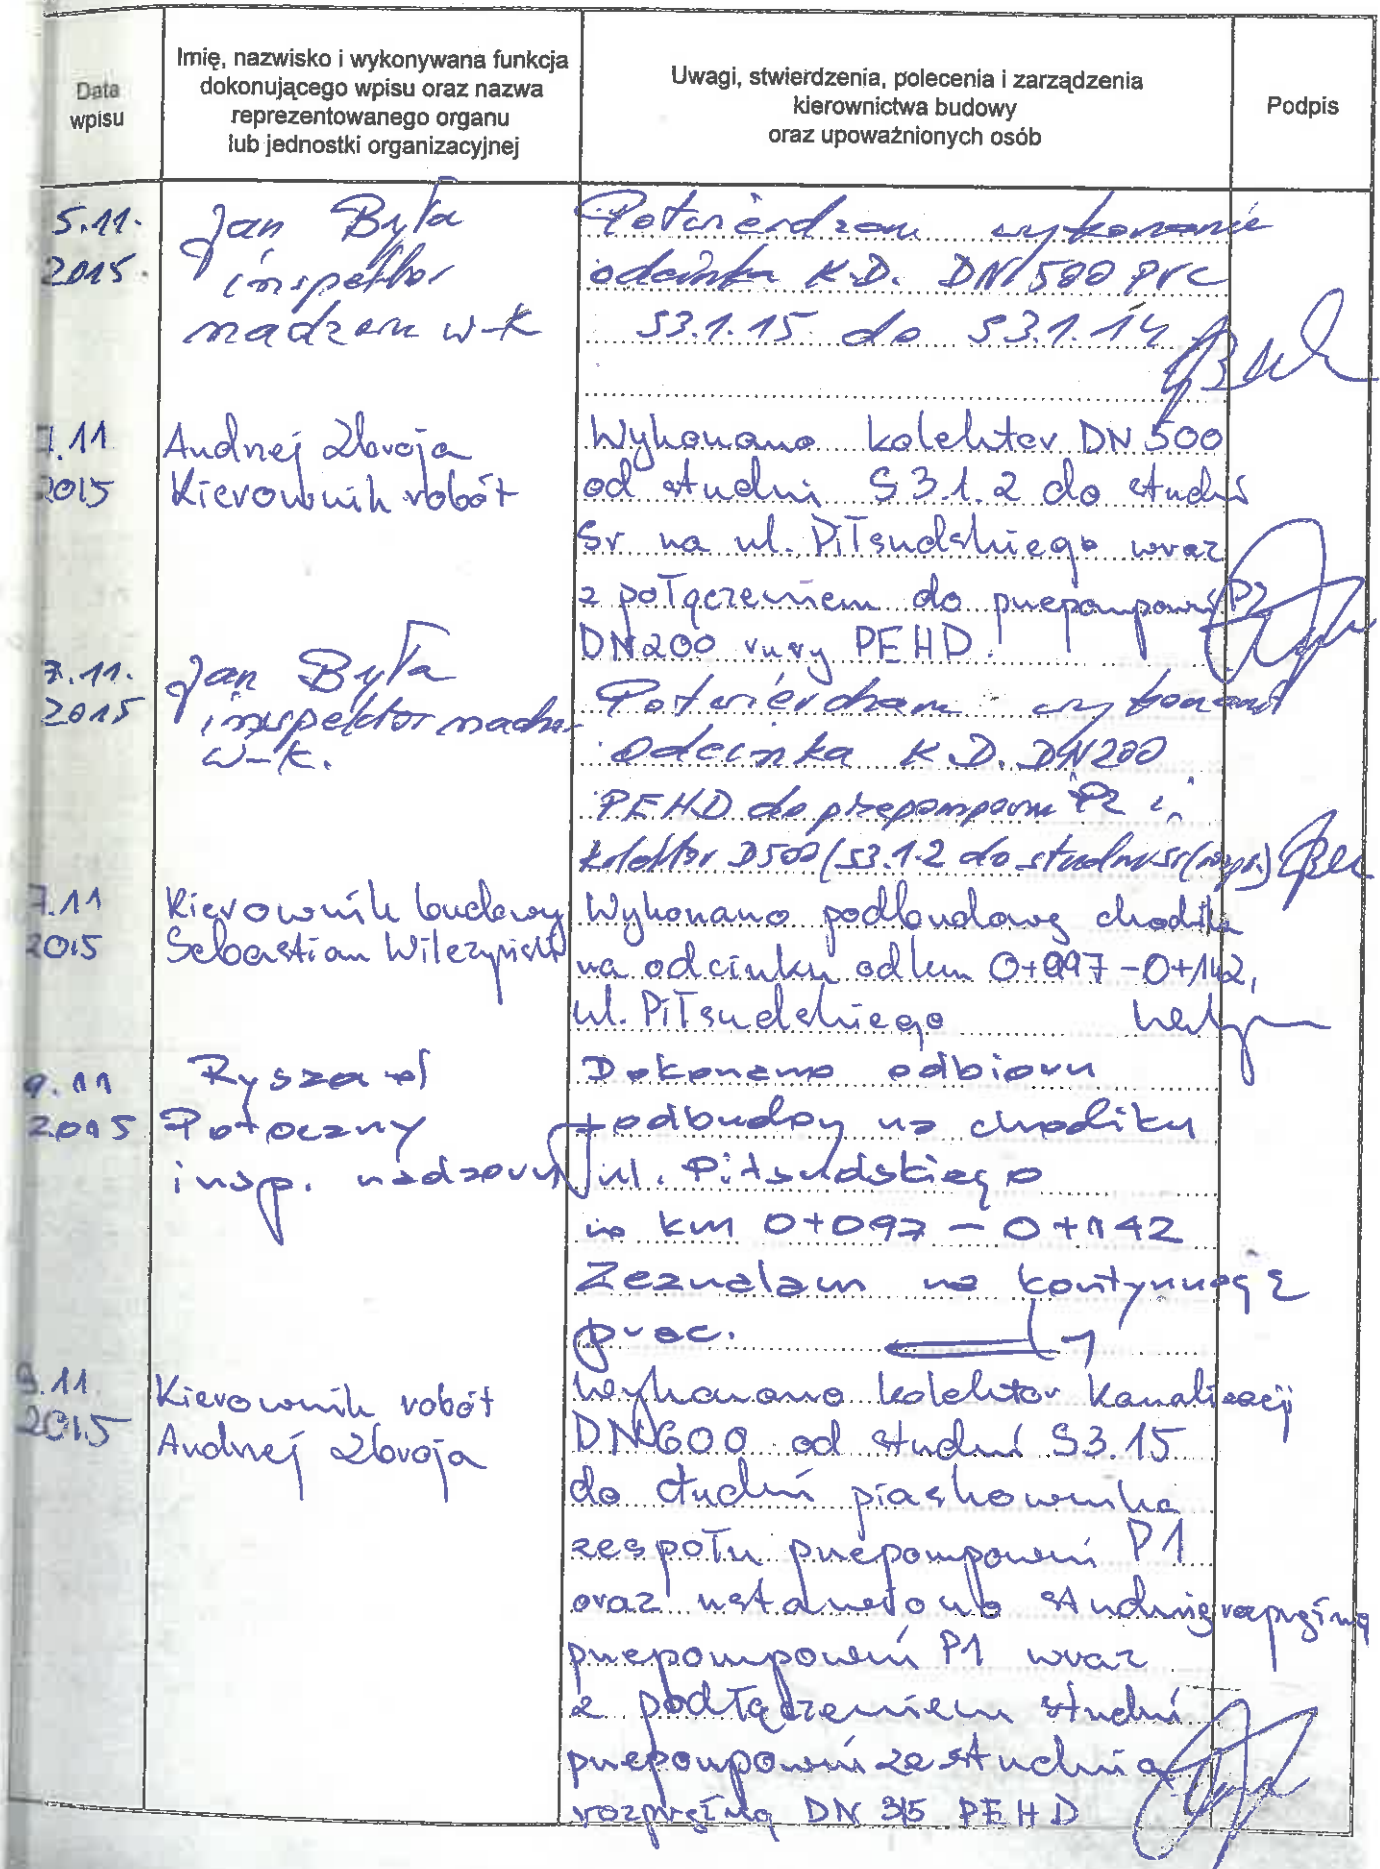 Data
wpisu
Imię, nazwisko i wykonywana funkcja
dokonującego wpisu oraz nazwa
reprezentowanego organu
lub jednostki organizacyjnej
Uwagi, stwierdzenia, polecenia i zarządzenia
kierownictwa budowy
oraz upoważnionych osób
Podpis
5.11.
2015.
Jan Były
inspektor
nadzoru w-k
Potwierdzam wykonanie
odcinka K.D. DN 500 PVC
S3.1.15 do S3.1.14
.11
2015
Andrzej Zbroja
Kierownik robót
Wykonano kolektor DN 500
od studni S3.1.2 do studni
Sr na ul. Piłsudskiego wraz
z połączeniem do przepompowni P2
DN200 rury PEHD.
7.11.
2015
Jan Były
inspektor nadzoru
w-k.
Potwierdzam wykonanie
odcinka K.D. DN200
PEHD do przepompowni P2 i
kolektor D500 (S3.1.2 do studni Sr
7.11
2015
Kierownik budowy
Sebastian Wilczyński
Wykonano podbudowę chodnika
na odcinku od km 0+097-0+142,
ul. Piłsudskiego
9.11
2015
Ryszard
Potoczny
insp. nadzoru
Dokonano odbioru
podbudowy na chodniku
ul. Piłsudskiego
w km 0+097 - 0+142
Zezwalam na kontynuację
prac.
9.11.
2015
Kierownik robót
Andrzej Zbroja
Wykonano kolektor kanalizacji
DN600 od studni S3.15
do studni piaskownika
zespołu przepompowni P1
oraz ustawiono studnię rozprężną
przepompowni P1 wraz
z podłączeniem studni
przepompowni ze studnią
rozprężną DN 315 PEHD